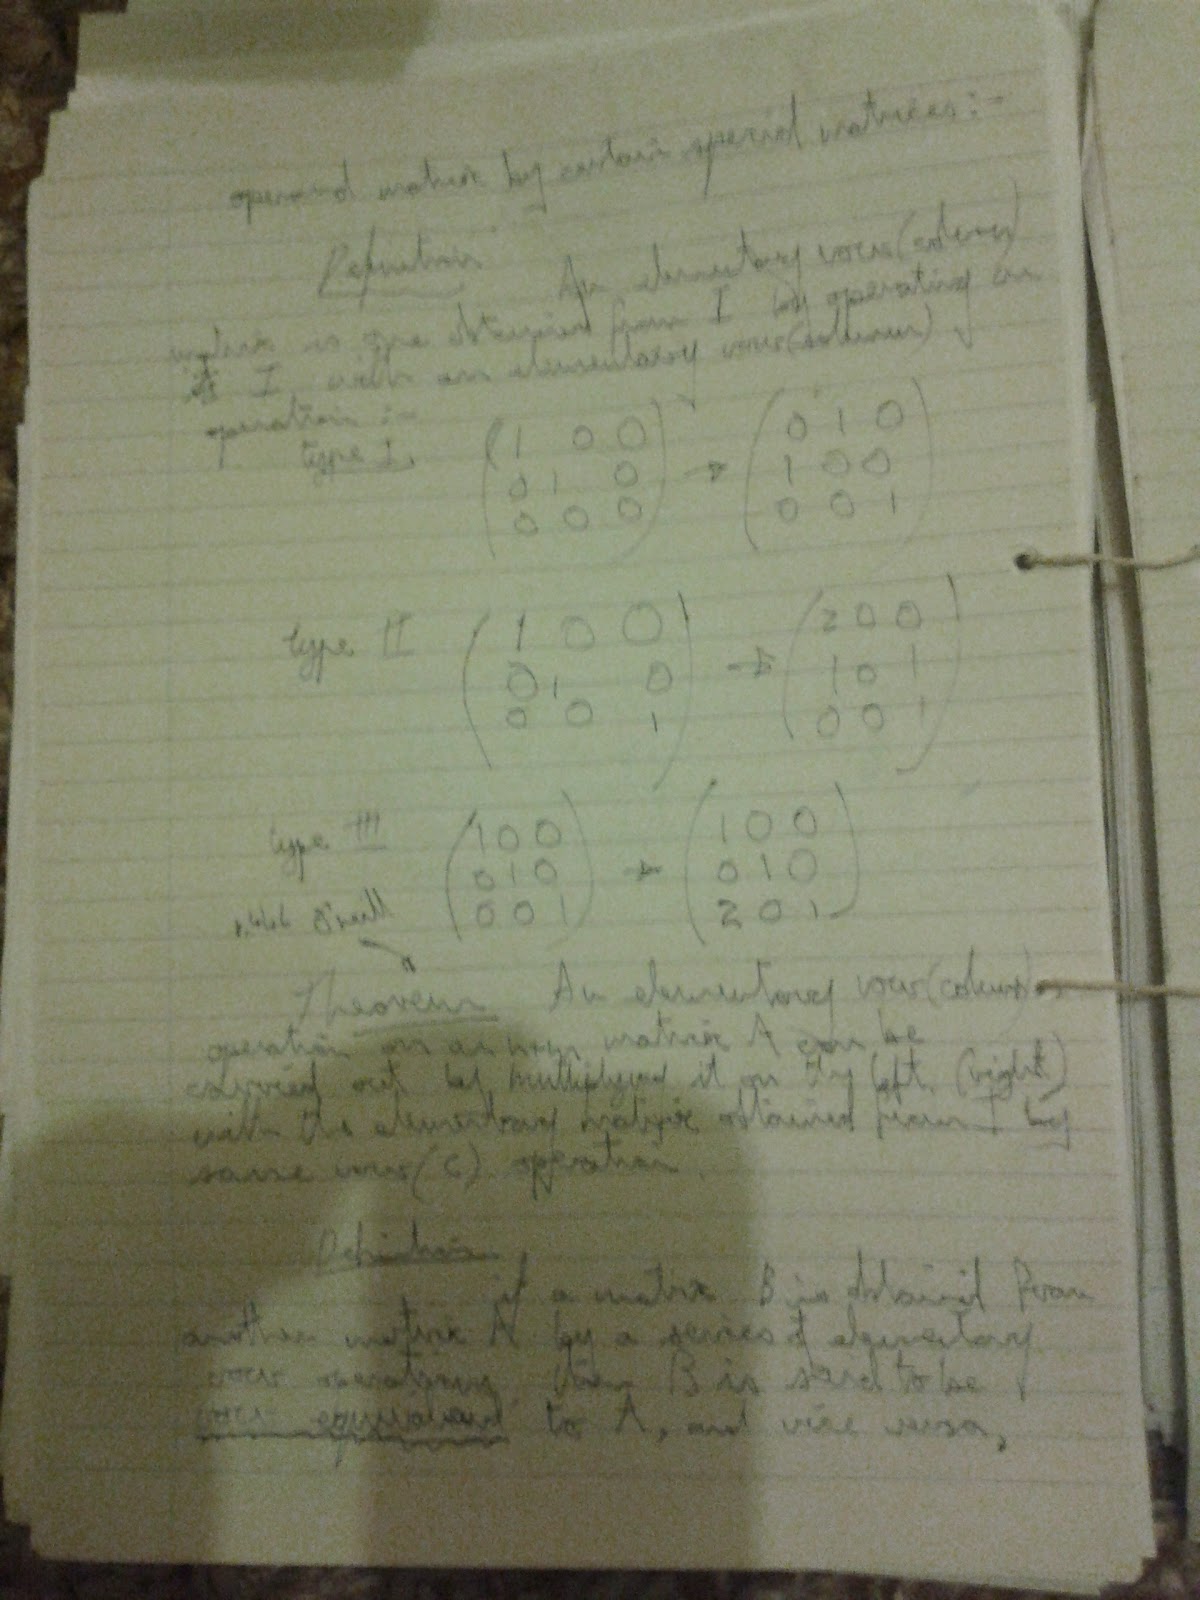 operand matrix by certain special matrices :-
Definition
An elementary row (column)
matrix is one obtained from I by operating on
it I with an elementary row (column)
operation :-
type I. ( 1 0 0 → ( 0 1 0
0 1 0 1 0 0
0 0 0 ) 0 0 1 )
type II ( 1 0 0 → ( 2 0 0
0 1 0 1 0 1
0 0 1 ) 0 0 1 )
type III ( 1 0 0 → ( 1 0 0
0 1 0 0 1 0
0 0 1 ) 2 0 1 )
Theorem An elementary row (column)
operation on an matrix A can be
carried out by multiplying it on the left (right)
with the elementary matrix obtained from I by
same row (c) operation.
Definition
if a matrix B is obtained from
another matrix A by a series of elementary
row operations then B is said to be
row equivalent to A, and vice versa,